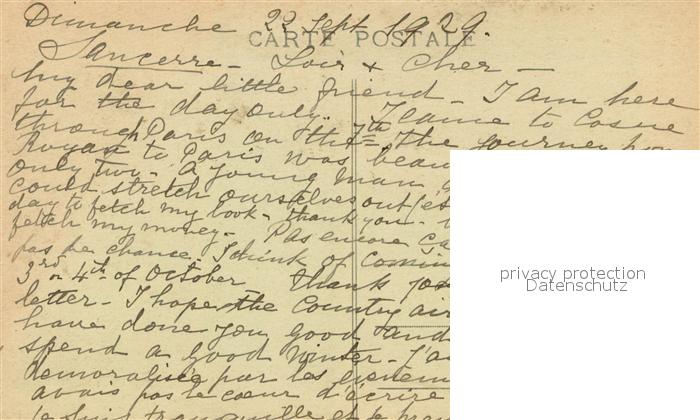 Dimanche 22 Sept 1929.
CARTE POSTALE
Sancerre - Loir & Cher -
My dear little friend - I am here
for the day only. I came to Cosne
through Paris on the 7th The journey from
Royan to Paris was beau
only two - A young man
could stretch ourselves out (et
day to fetch my book - thank you -
fetch my money. - Pas encore ga
pas de chance. I think of comin
3rd or 4th of October Thank you
letter - I hope the Country air
have done you good and
spend a good Winter - J'a
demoralisée par les évènem
avais pas le cœur d'écrire
Je suis tranquille et
privacy protection
Datenschutz